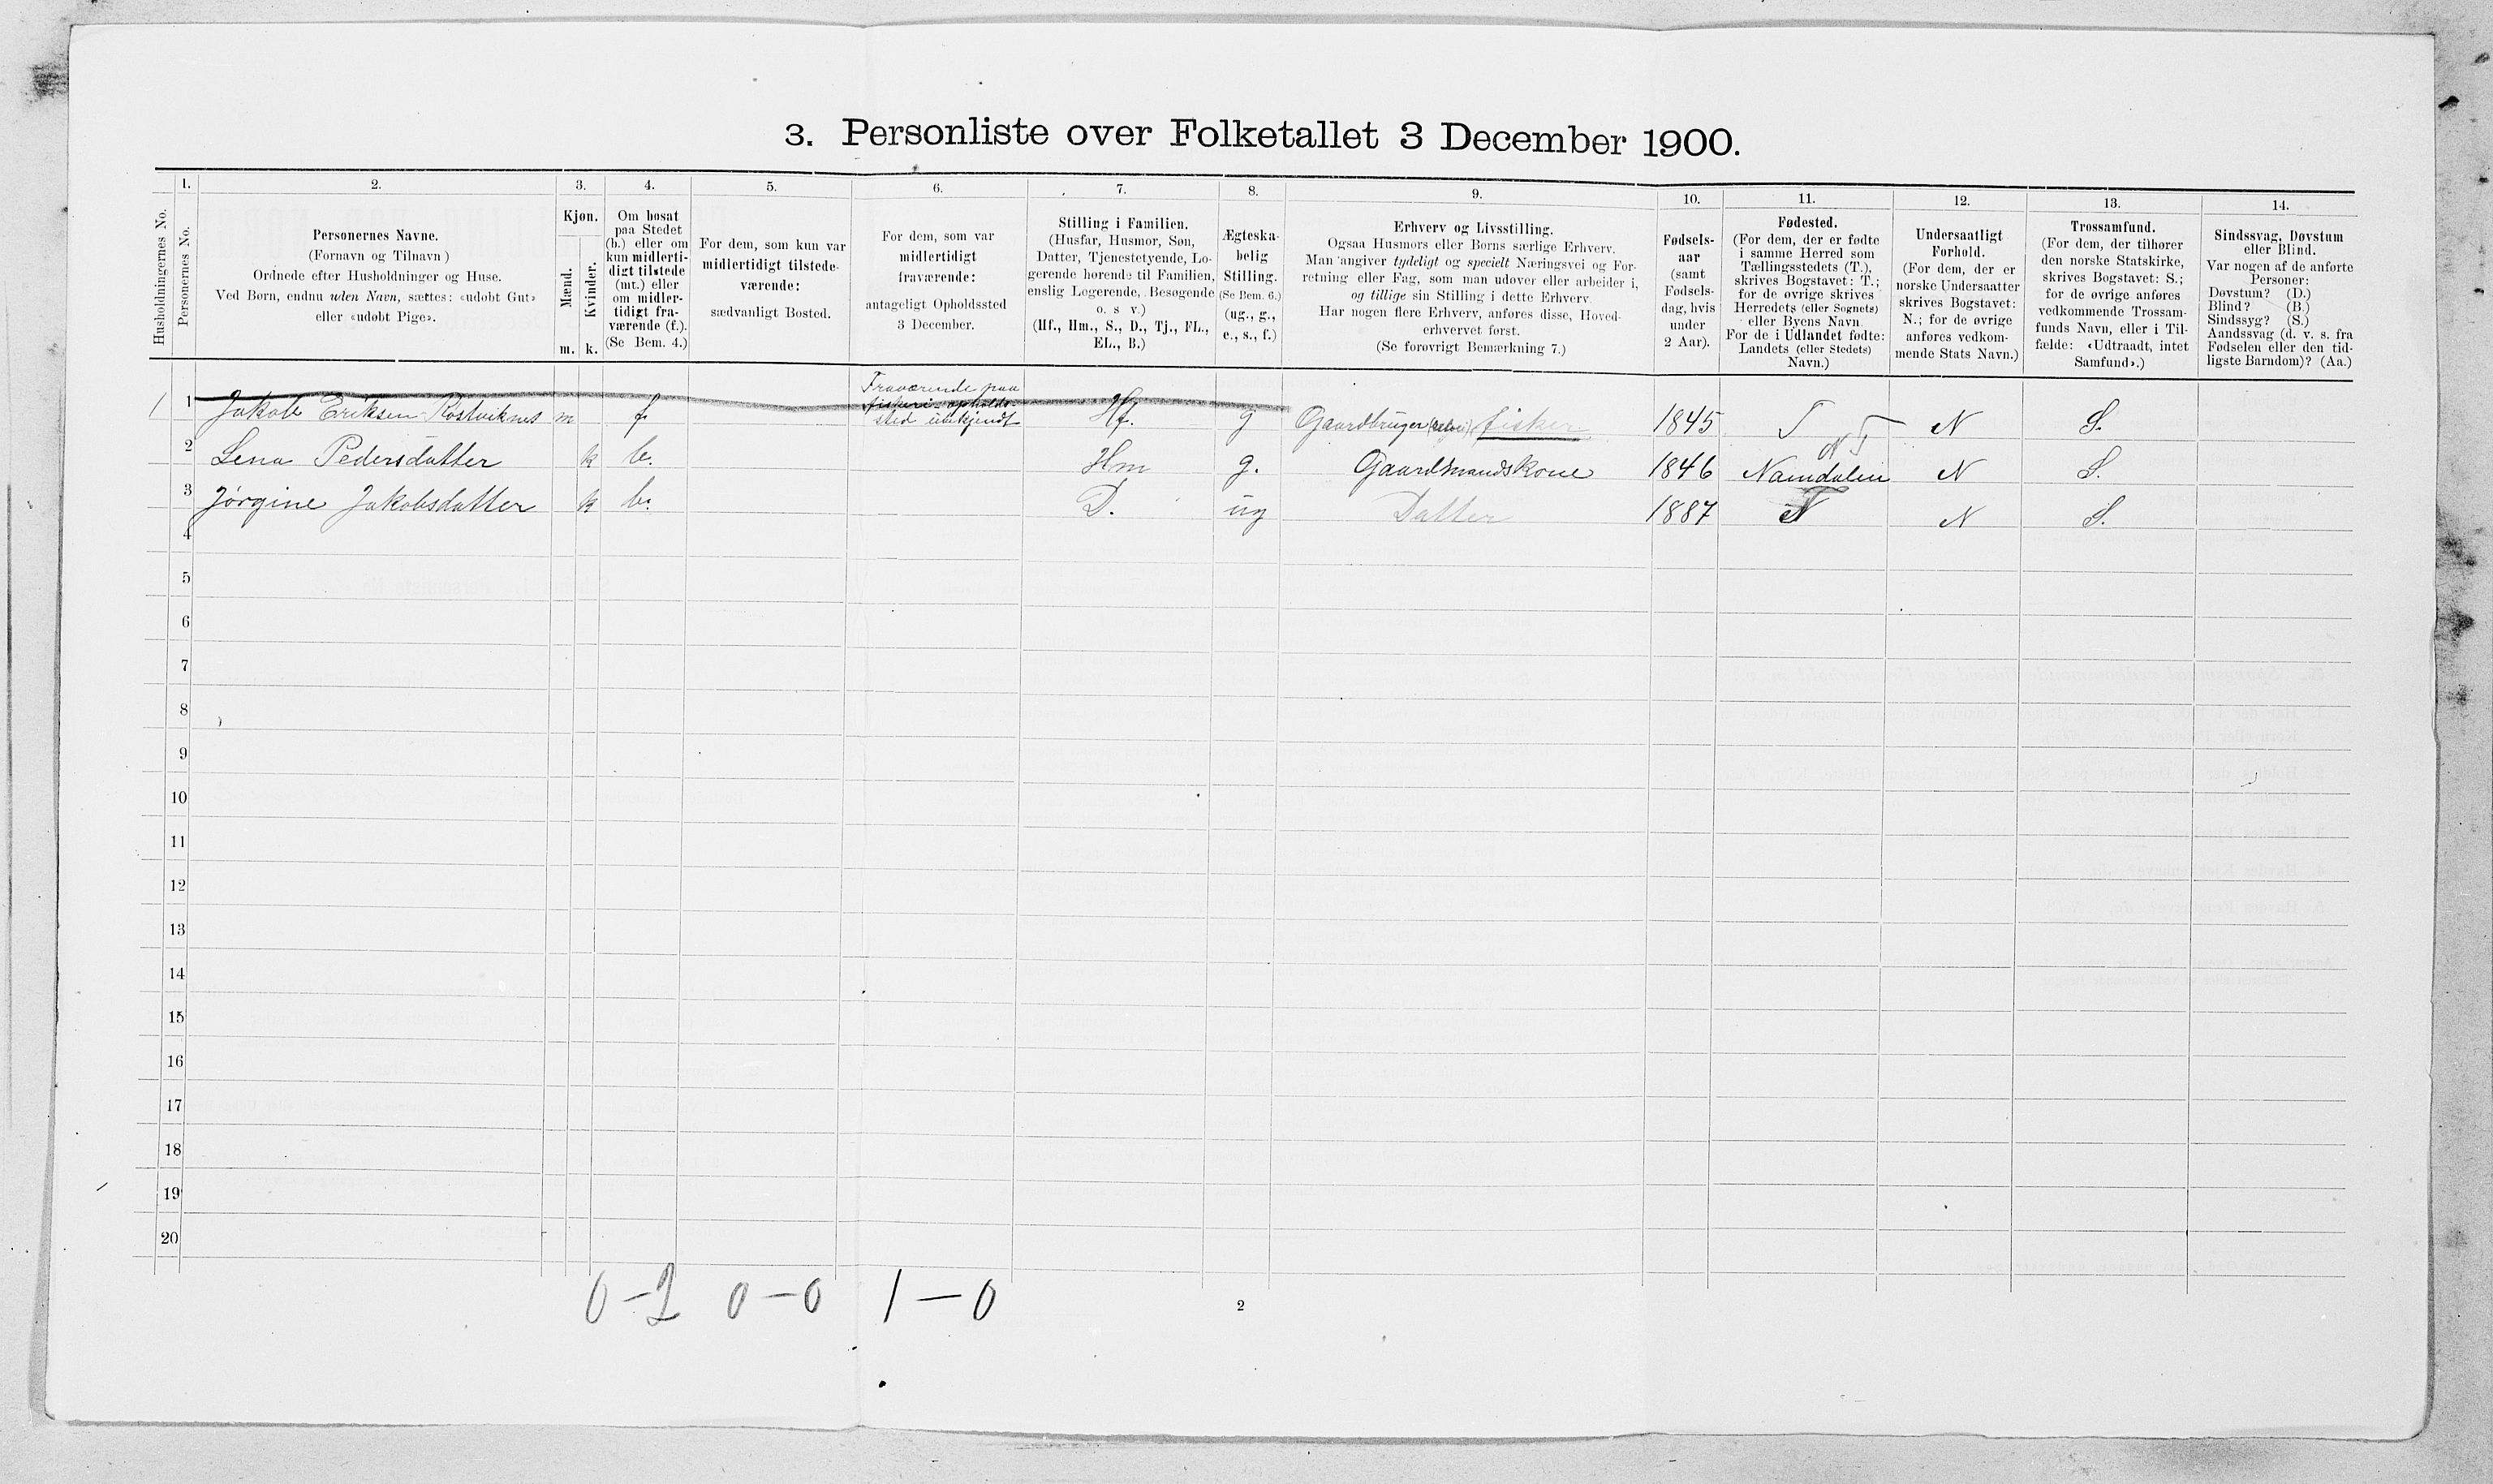 3. Personliste over Folketallet 3 December 1900.
1. 2. 3. 4. 5. 6. 7. 8. 9. 10. 11. 12. 13. 14.
Husholdningernes No.
Personernes No.
Personernes Navne.
(Fornavn og Tilnavn)
Ordnede efter Husholdninger og Huse.
Ved Børn, endnu uden Navn, sættes: «udøbt Gut»
eller «udøbt Pige».
Kjøn.
Mænd.
Kvinder.
m. k.
Om bosat
paa Stedet
(b.) eller om
kun midlerti-
digt tilstede
(mt.) eller
om midler-
tidigt fra-
værende (f.).
(Se Bem. 4.)
For dem, som kun var
midlertidigt tilstede-
værende:
sædvanligt Bosted.
For dem, som var
midlertidigt
fraværende:
antageligt Opholdssted
3 December.
Stilling i Familien.
(Husfar, Husmor, Søn,
Datter, Tjenestetyende, Lo-
gerende hørende til Familien,
enslig Logerende, Besøgende
o. s. v.)
(Hf., Hm., S., D., Tj., FL.,
EL., B.)
Ægteska-
belig
Stilling.
(Se Bem. 6.)
(ug., g.,
e., s., f.)
Erhverv og Livsstilling.
Ogsaa Husmors eller Børns særlige Erhverv.
Man angiver tydeligt og specielt Næringsvei og For-
retning eller Fag, som man udøver eller arbeider i,
og tillige sin Stilling i dette Erhverv.
Har nogen flere Erhverv, anføres disse, Hoved-
erhvervet først.
(Se forøvrigt Bemærkning 7.)
Fødsels-
aar
(samt
Fødsels-
dag, hvis
under
2 Aar).
Fødested.
(For dem, der er fødte
i samme Herred som
Tællingsstedets (T.),
skrives Bogstavet: T.;
for de øvrige skrives
Herredets (eller Sognets)
eller Byens Navn.
For de i Udlandet fødte:
Landets (eller Stedets)
Navn.)
Undersaatligt
Forhold.
(For dem, der er
norske Undersaatter
skrives Bogstavet:
N.; for de øvrige
anføres vedkom-
mende Stats Navn.)
Trossamfund.
(For dem, der tilhører
den norske Statskirke,
skrives Bogstavet: S.;
for de øvrige anføres
vedkommende Trossam-
funds Navn, eller i Til-
fælde: «Udtraadt, intet
Samfund».)
Sindssvag, Døvstum
eller Blind.
Var nogen af de anførte
Personer:
Døvstum? (D.)
Blind? (B.)
Sindssyg? (S.)
Aandssvag (d. v. s. fra
Fødselen eller den tid-
ligste Barndom)? (Aa.)
Fraværende paa
fiskeri-opholds-
sted ubekjendt
1 1 Jakob Eriksen Røstviknes m f. Hf. g Gaardbruger fisker 1845 T N S.
N T
2 Lena Pedersdatter k b. Hm g. Gaardmandskone 1846 Namdalen N S.
3 Jørgine Jakobsdatter k b. D. ug Datter 1887 T N S.
4
5
6
7
8
9
10
11
12
13
14
15
16
17
18
19
20
0-2 0-0 1-0
2